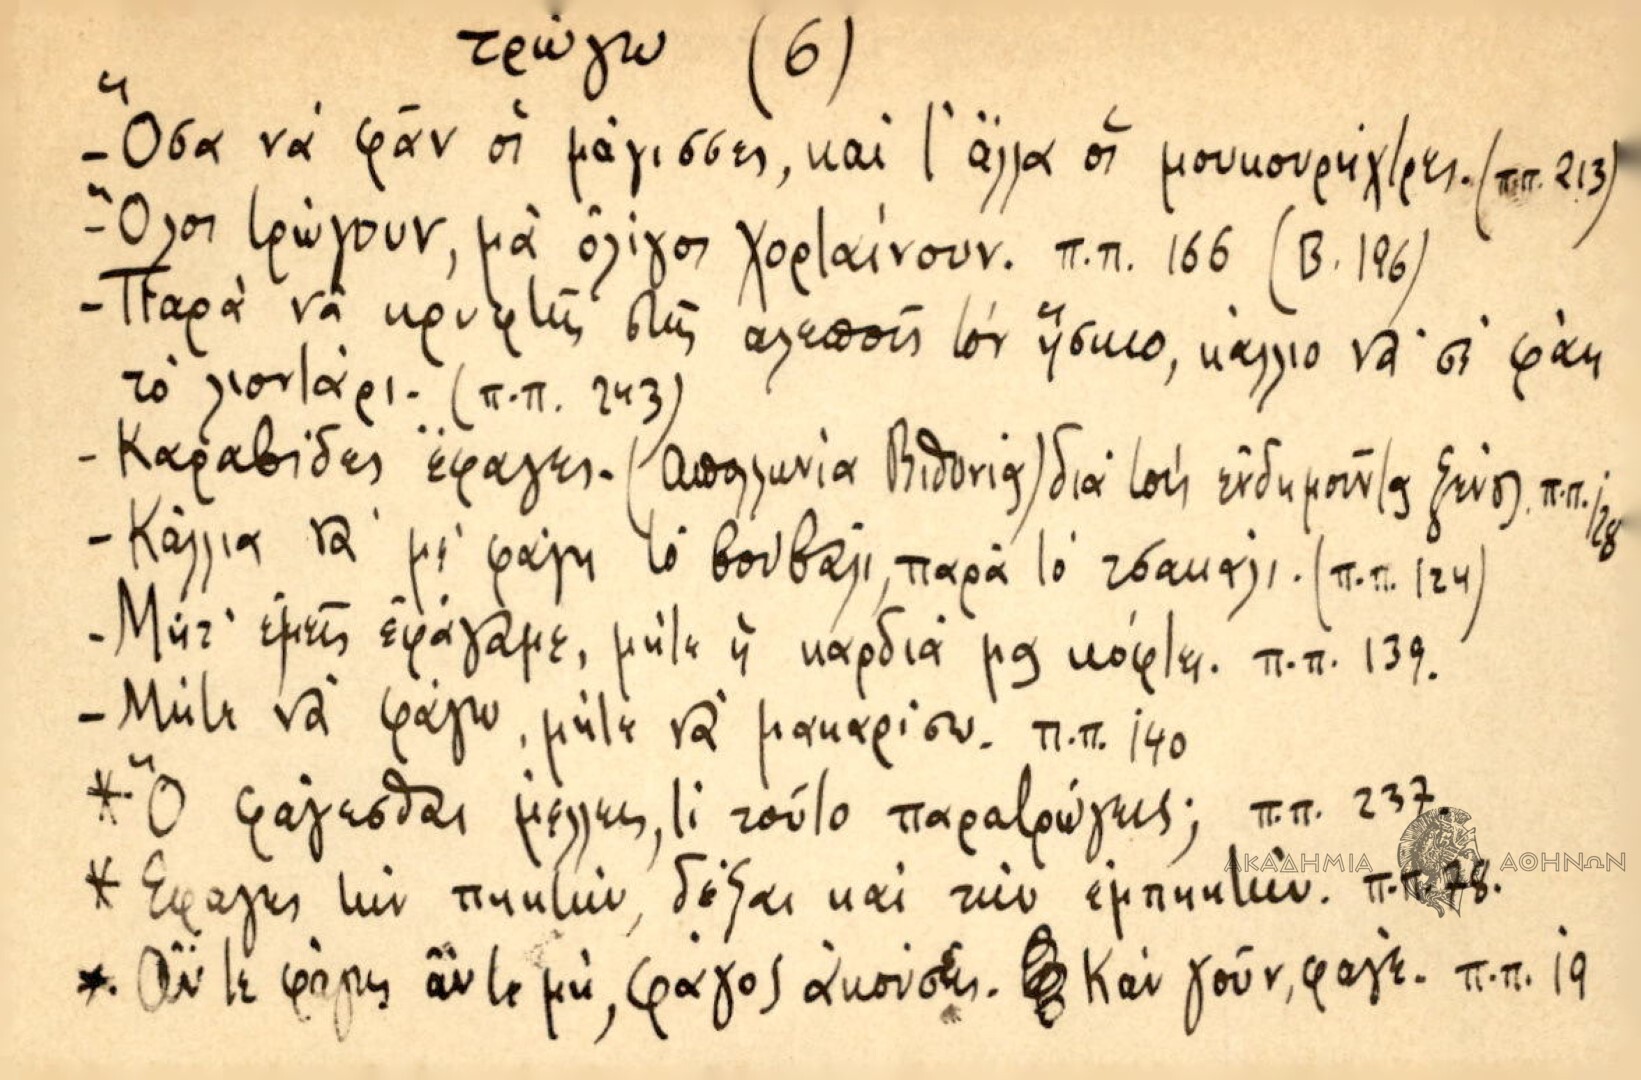 τρώγω (6)
- Ὅσα νά φᾶν οἱ μάγισσες, καί τ' ἄλλα οἱ μουκουρήχτρες. (π.π. 213)
- Ὅλοι τρώγουν, μά ὀλίγοι χορταίνουν. π.π. 166 (Β. 196)
- Παρά νά κρυφτῇς στῆς αλεποῦς τόν ἥσκιο, κάλλιο νά σέ φάη
τό λιοντάρι. (π.π. 243)
- Καραβίδες ἔφαγες. (Απολλωνία Βιθυνίας) διά τούς εὐδημοῦντας ξένους π.π. 128
- Κάλλια νά μέ φάγη τό βουβάλι, παρά τό τσακάλι. (π.π. 124)
- Μήτ' ἐμεῖς ἐφάγαμε, μήτε ἡ καρδιά μας κόφτει. π.π. 139.
- Μήτε νά φάγω, μήτε νά μακαρίσω. π.π. 140
* Ὅ φάγεσθαι μέλλεις, τί τοῦτο παρατρώγεις; π.π. 237.
* Εφαγες τήν πηκτήν, δέξαι καί τήν ἐμπηκτήν. π.π. 78.
* Ἄν τε φάγῃς ἄν τε μή, φάγος ἀκούσεις. Κἄν γοῦν, φαγέ. π.π. 19
ΑΚΑΔΗΜΙΑ ΑΘΗΝΩΝ